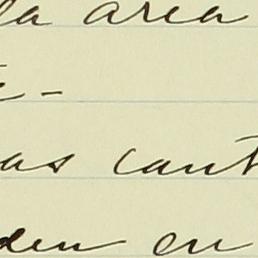 la area
as cant
den en